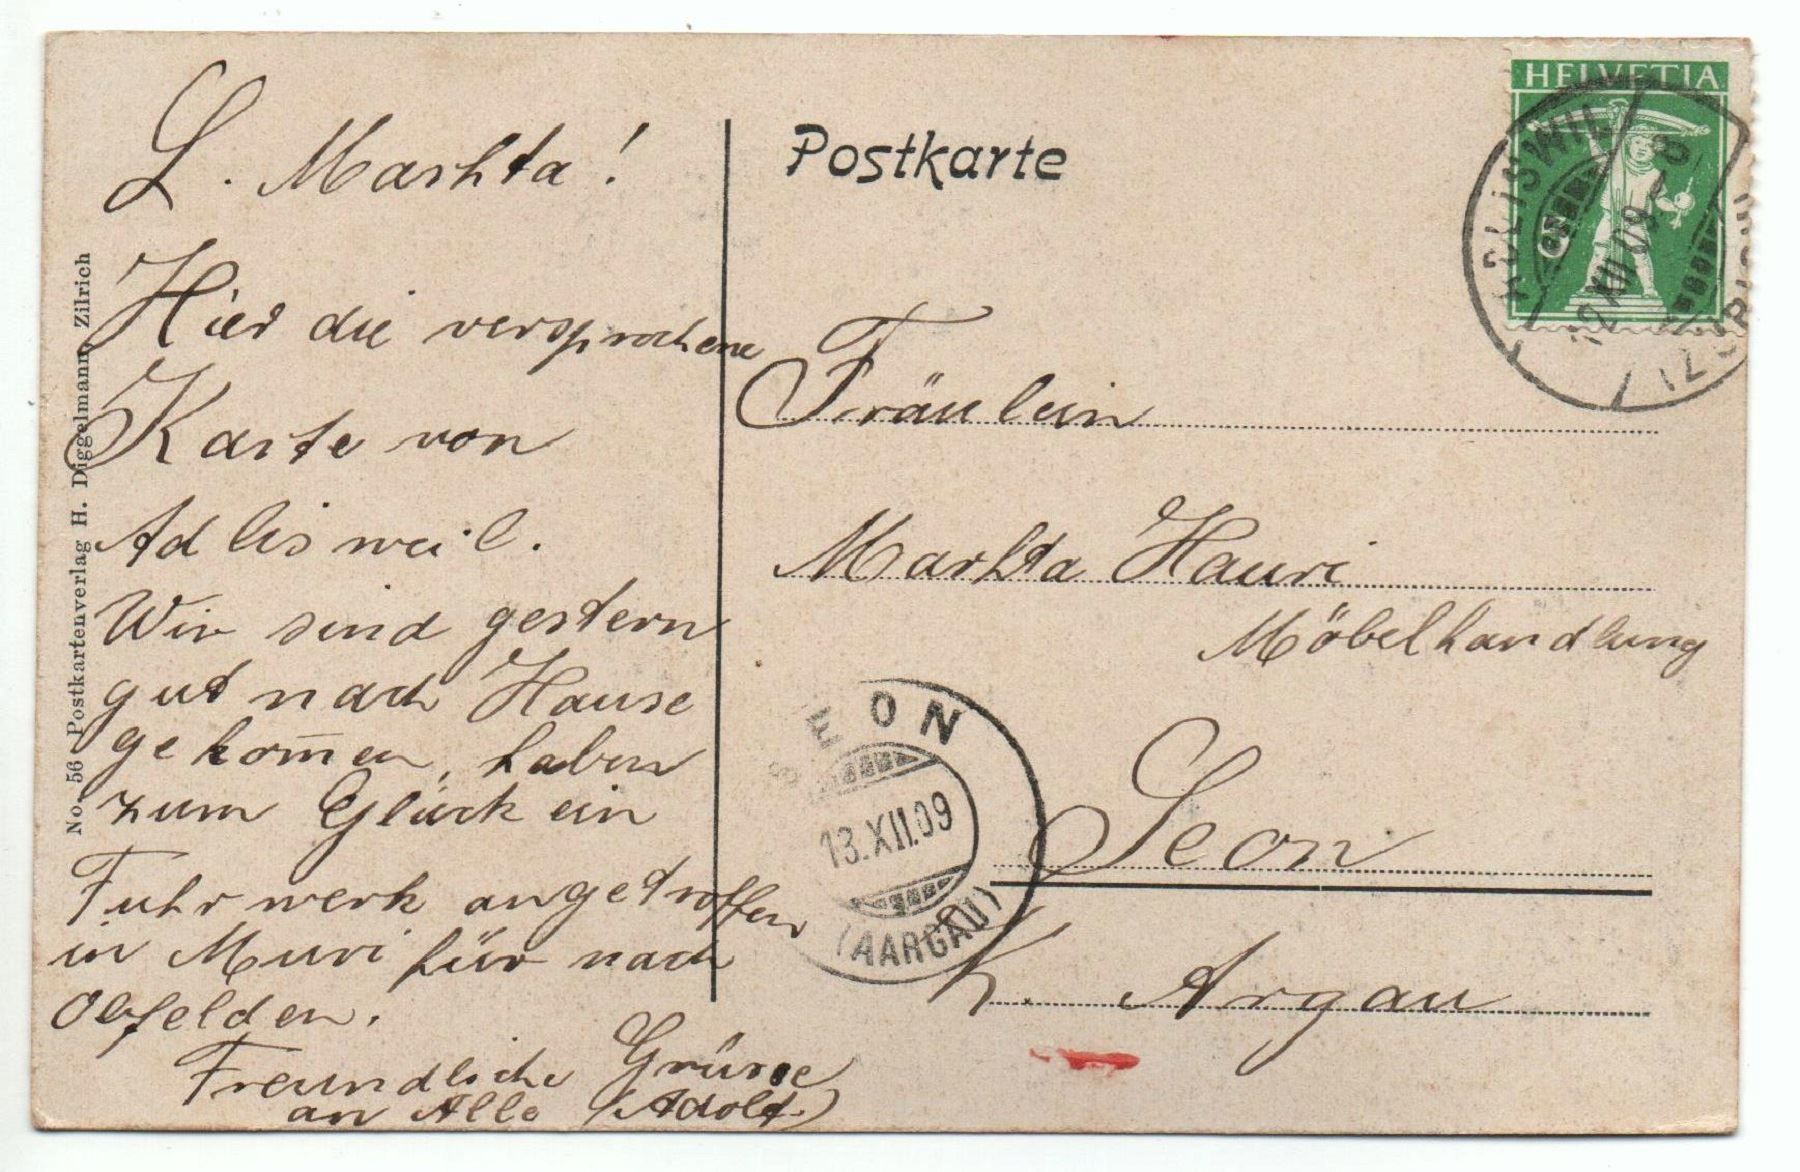 L. Marhta!
Hier die versprochene
Karte von
Adlisweil.
Wir sind gestern
gut nach Hause
gekom̄en, haben
zum Glück ein
Fuhrwerk angetroffen
in Muri für nach
Obfelden.
Freundliche Grüsse
an Alle (Adolf)
No. 56 Postkartenverlag H. Diggelmann, Zilrich
Postkarte
HELVETIA
ADLISWIL
12.XII.09.-8
(ZÜRICH)
Fräulein
Marhta Hauri
Möbelhandlung
Seon
K. Argau
SEON
13.XII.09
(AARGAU)